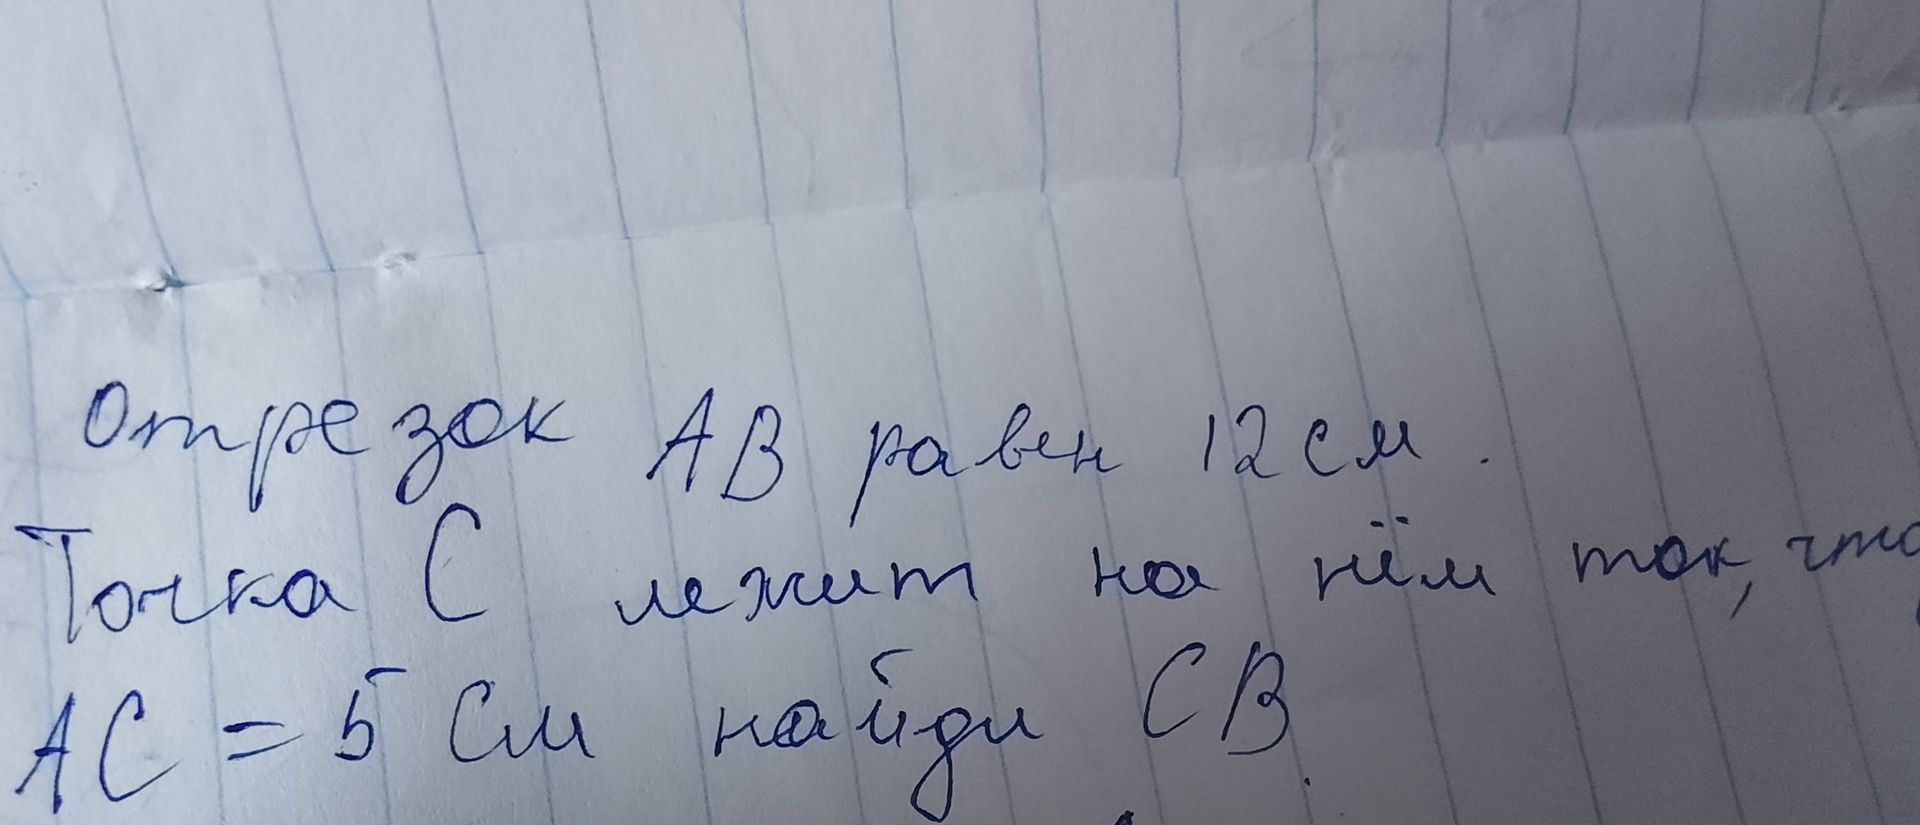 Отрезок АВ равен 12 см.
Точка С лежит на нём так, что
АС = 5 см найди СВ.